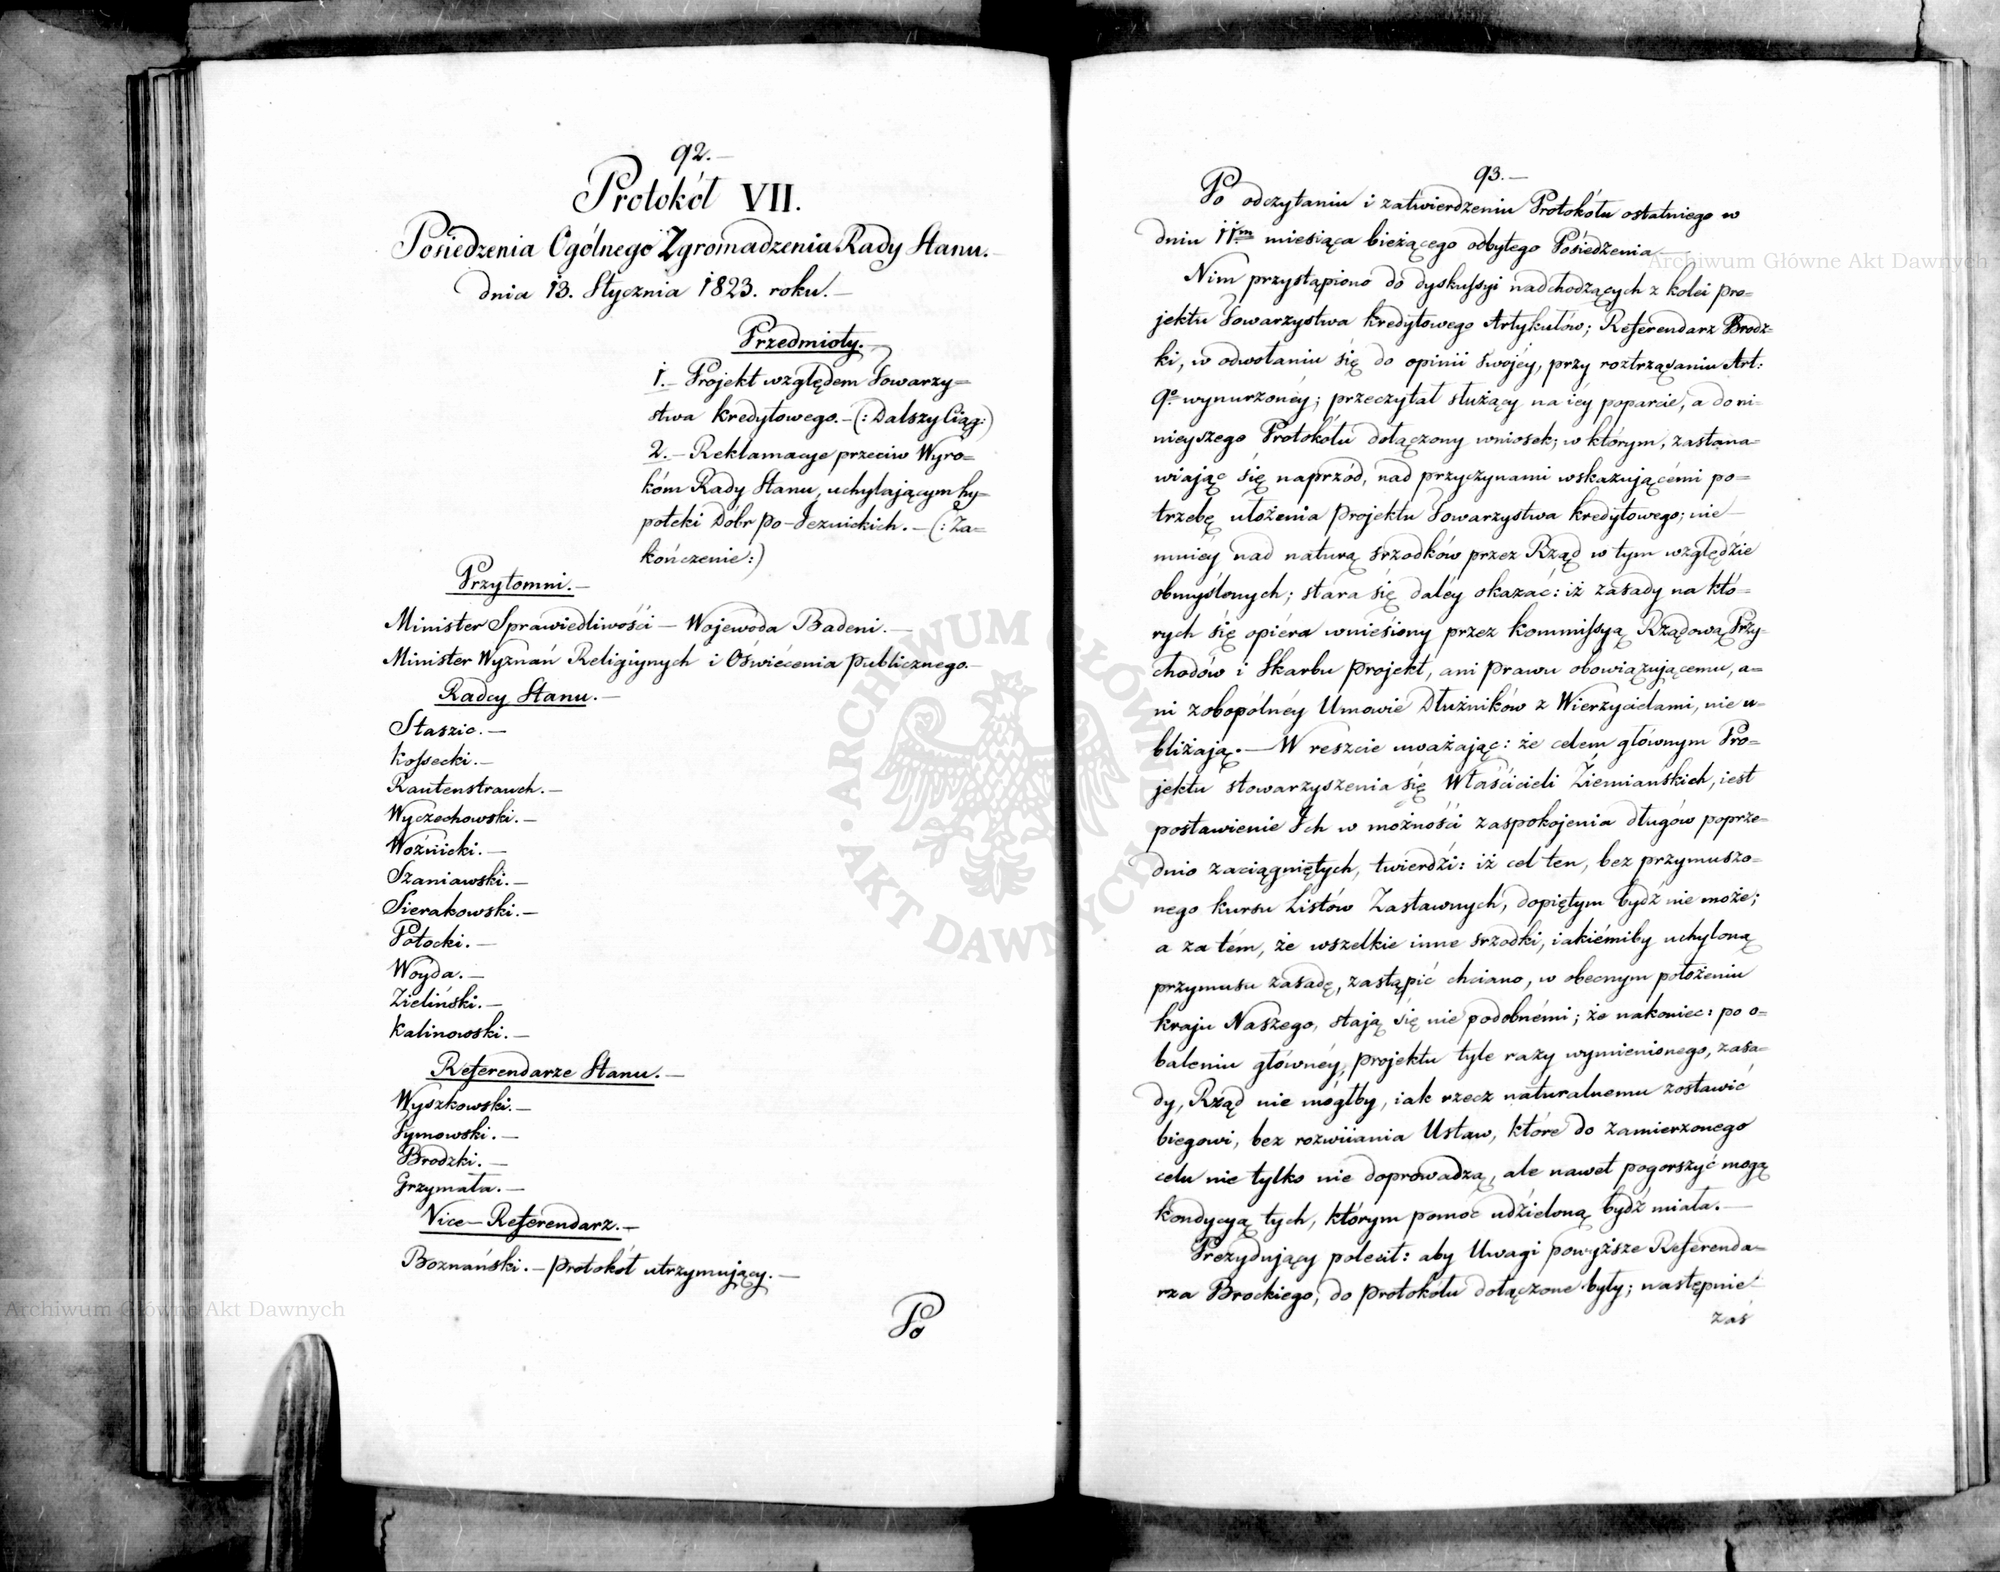 92.—
Protokół VII.
Posiedzenia Ogólnego Zgromadzenia Rady Stanu.—
dnia 13. Stycznia 1823. roku.—
Przedmioty.—
1.— Projekt względem Towarzy=
stwa kredytowego.—(: Dalszy Ciąg:)
2.— Reklamacye przeciw Wyro=
kóm Rady Stanu, uchylającym hy=
poteki Dóbr po-Jezuickich.—(: Za=
kończenie:)
Przytomni.—
Minister Sprawiedliwości — Wojewoda Badeni.—
Minister Wyznań Religiynych i Oświecenia publicznego.—
Radcy Stanu.—
Staszic.—
Kossecki.—
Rautenstrauch.—
Wyczechowski.—
Woźnicki.—
Szaniawski.—
Sierakowski.—
Potocki.—
Woyda.—
Zieliński.—
Kalinowski.—
Referendarze Stanu.—
Wyszkowski.—
Tymowski.—
Brodzki.—
Grzymała.—
Vice-Referendarz.—
Boznański.— protokół utrzymujący.—
Po
93.—
Po odczytaniu i zatwierdzeniu Protokółu ostatniego w
dniu 11m miesiąca bieżącego odbytego Posiedzenia—
Nim przystąpiono do dyskussyi nadchodzących z kolei pro=
jektu Towarzystwa kredytowego Artykułów; Referendarz Brodz=
ki, w odwołaniu się do opinii swojéy, przy roztrząsaniu Art:
9o wynurzonéy; przeczytał służący na iéy poparcie, a do ni=
nieyszego Protokółu dołączony wniosek; w którym, zastana=
wiając się naprzód, nad przyczynami wskazującémi po=
trzebę ułożenia projektu Towarzystwa kredytowego; nie—
mniey nad naturą srzodków przez Rząd w tym względzie
obmyślonych; stara się daléy okazać: iż zasady na któ=
rych się opiéra wniesiony przez kommissyą Rządową Przy=
chodów i Skarbu projekt, ani prawu obowiązującemu, a=
ni zobopólnéy Umowie Dłużników z Wierzycielami, nie u=
bliżają.— W reszcie uważając: że celem głównym Pro=
jektu stowarzyszenia się Właścicieli Ziemiańskich, iest
postawienie Ich w możności zaspokojenia długów poprze=
dnio zaciągniętych, twierdzi: iż cel ten, bez przymuszo=
nego kursu Listów Zastawnych, dopiętym bydź nie może;
a za tém, że wszelkie inne srzodki, iakiémiby uchyloną
przymusu zasadę, zastąpić chciano, w obecnym położeniu
kraju Naszego, stają się nie podobnémi; że nakoniec: po o=
baleniu głównéy, projektu tyle razy wymienionego, zasa=
dy, Rząd nie mógłby, iak rzecz naturalnemu zostawić
biegowi, bez rozwiiania Ustaw, które do zamierzonego
celu nie tylko nie doprowadzą, ale nawet pogorszyć mogą
kondycyą tych, którym pomoc udzieloną bydź miała.—
Prezydujący polecił: aby Uwagi powyższe Referenda=
rza Brockiego, do protokółu dołączone były; następnie
zaś
Archiwum Główne Akt Dawnych
Archiwum Główne Akt Dawnych
ARCHIWUM GŁÓWNE AKT DAWNYCH